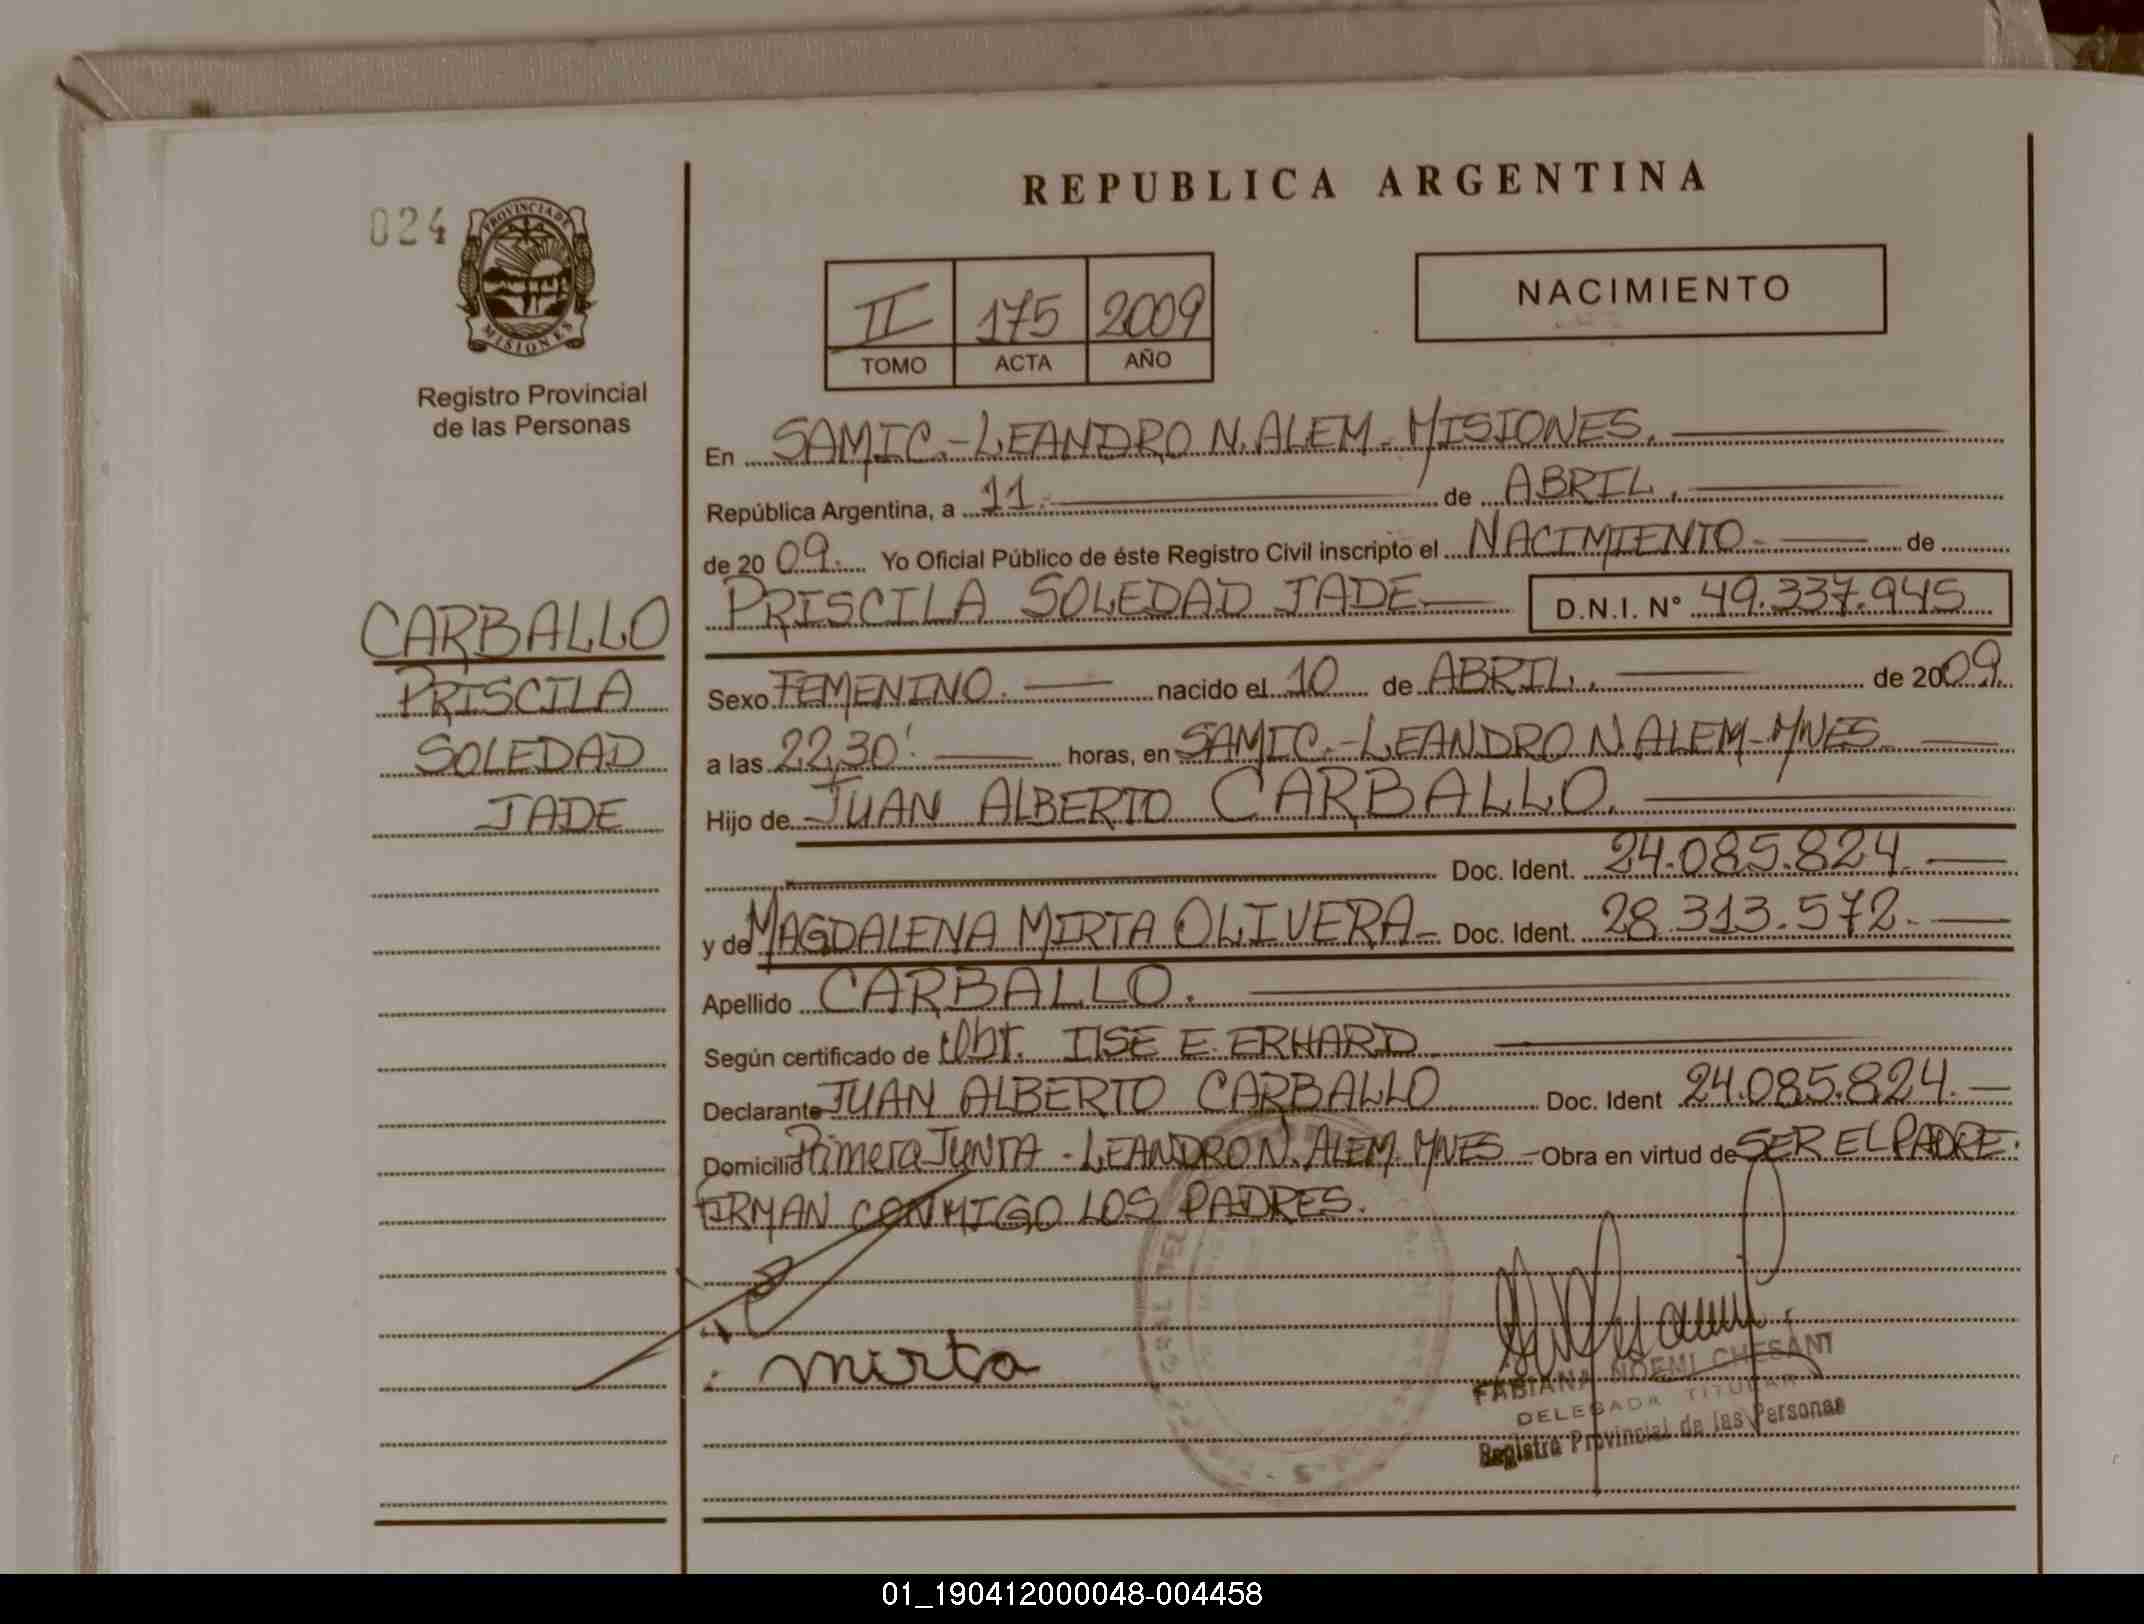 REPUBLICA ARGENTINA
024
PROVINCIA DE
MISIONES
Registro Provincial
de las Personas
II 175 2009
TOMO ACTA AÑO
NACIMIENTO
En SAMIC.-LEANDRO N. ALEM-MISIONES.
República Argentina, a 11. de ABRIL.
de 2009. Yo Oficial Público de éste Registro Civil inscripto el NACIMIENTO de
PRISCILA SOLEDAD JADE D.N.I. N° 49.337.945
CARBALLO
PRISCILA
SOLEDAD
JADE
Sexo FEMENINO. nacido el 10 de ABRIL. de 2009.
a las 22,30'. horas, en SAMIC.-LEANDRO N ALEM-MNES
Hijo de JUAN ALBERTO CARBALLO.
Doc. Ident. 24.085.824.
y de MAGDALENA MIRTA OLIVERA- Doc. Ident. 28.313.572.
Apellido CARBALLO.
Según certificado de Obt. ILSE E. ERHARD
Declarante JUAN ALBERTO CARBALLO Doc. Ident 24.085.824.
Domicilio Primera JUNTA - LEANDRO N. ALEM. MNES - Obra en virtud de SER EL PADRE.
FIRMAN CONMIGO LOS PADRES.
mirta
FABIANA NOEMI CHESANI
DELEGADA TITULAR
Registro Provincial de las Personas
01_190412000048-004458